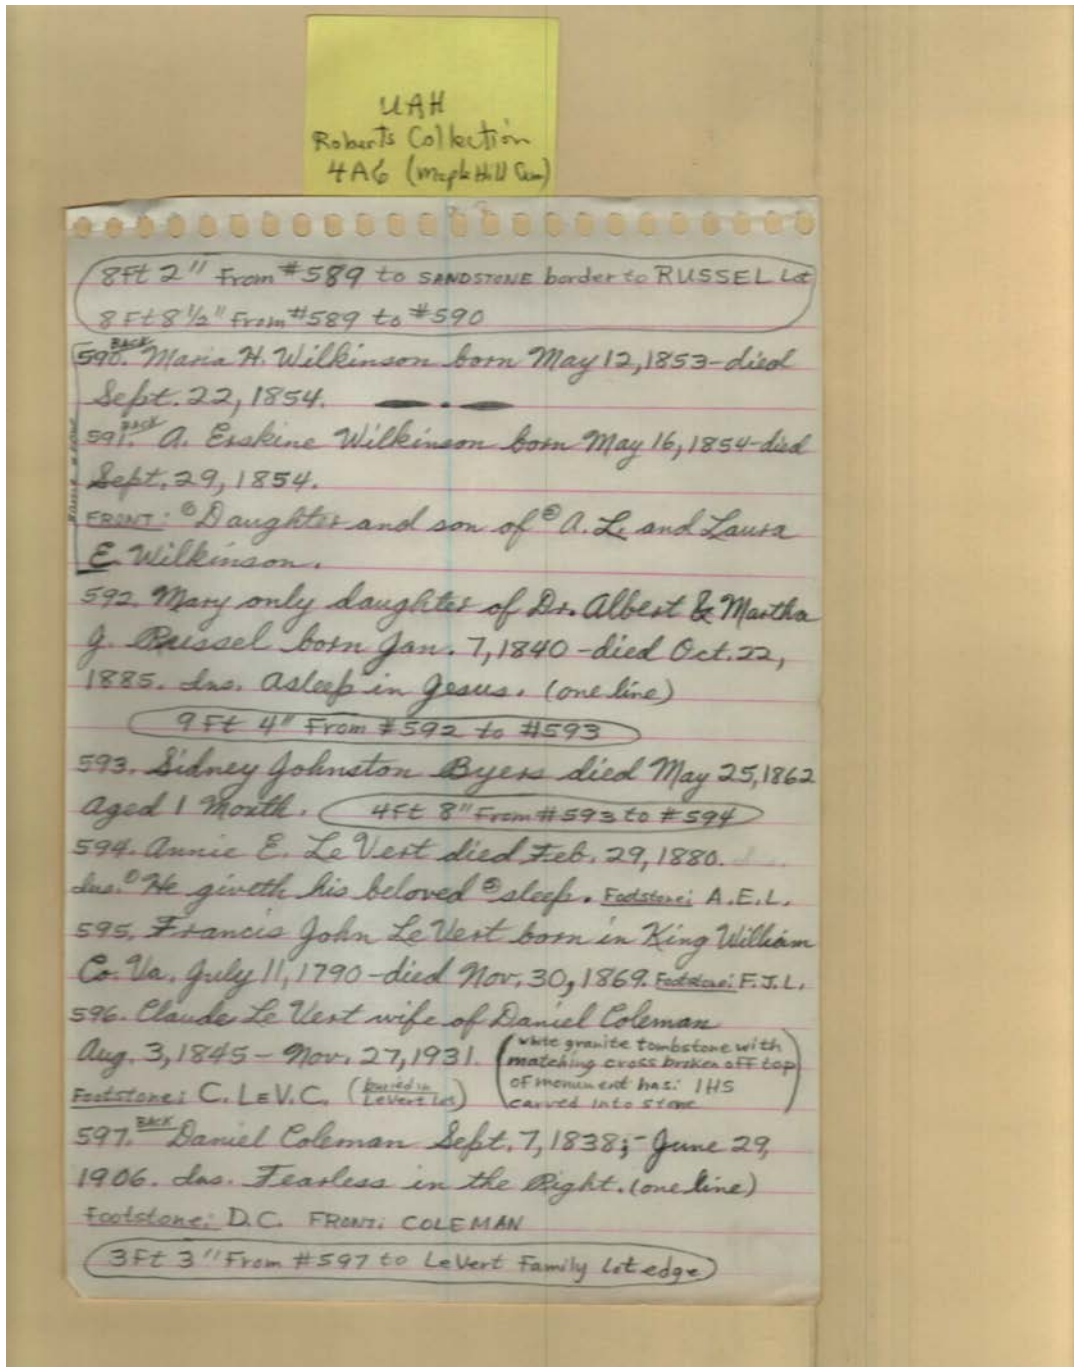 UAH
Roberts Collection
4A6 (Maple Hill Cem)
8Ft 2" From #589 to SANDSTONE border to RUSSEL Lot
8Ft 8 1/2" From #589 to #590
590. BACK Maria H. Wilkinson born May 12, 1853-died
Sept. 22, 1854.
591. BACK A. Erskine Wilkinson born May 16, 1854-died
Sept. 29, 1854.
FRONT: ① Daughter and son of ② A. L. and Laura
E. Wilkinson.
592. Mary only daughter of Dr. Albert & Martha
J. Russel born Jan. 7, 1840 -died Oct. 22,
1885. Ins. Asleep in Jesus. (one line)
9Ft 4" From #592 to #593
593. Sidney Johnston Byers died May 25, 1862
Aged 1 Month. 4Ft 8" From #593 to #594
594. Annie E. Le Vert died Feb. 29, 1880.
Ins. ① He giveth his beloved ② sleep. Footstone: A.E.L.
595. Francis John Le Vert born in King William
Co. Va. July 11, 1790 -died Nov. 30, 1869. Footstone: F.J.L.
596. Claude Le Vert wife of Daniel Coleman
Aug. 3, 1845 - Nov. 27, 1931. (white granite tombstone with
matching cross broken off top
of monument has: IHS
carved into stone)
Footstone: C. LeV.C. (buried in
LeVert Lot)
597. BACK Daniel Coleman Sept. 7, 1838;- June 29,
1906. Ins. Fearless in the Right. (one line)
Footstone: D.C. FRONT: COLEMAN
3Ft 3" From #597 to LeVert Family Lot edge